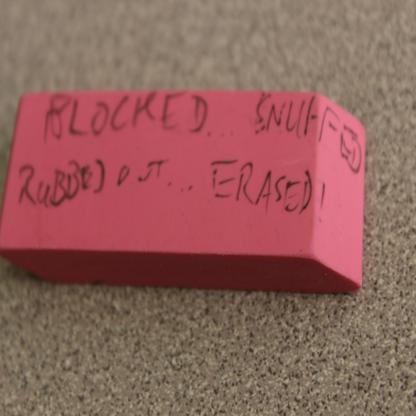 BLOCKED... SNUFFED
RUBBED OUT... ERASED!